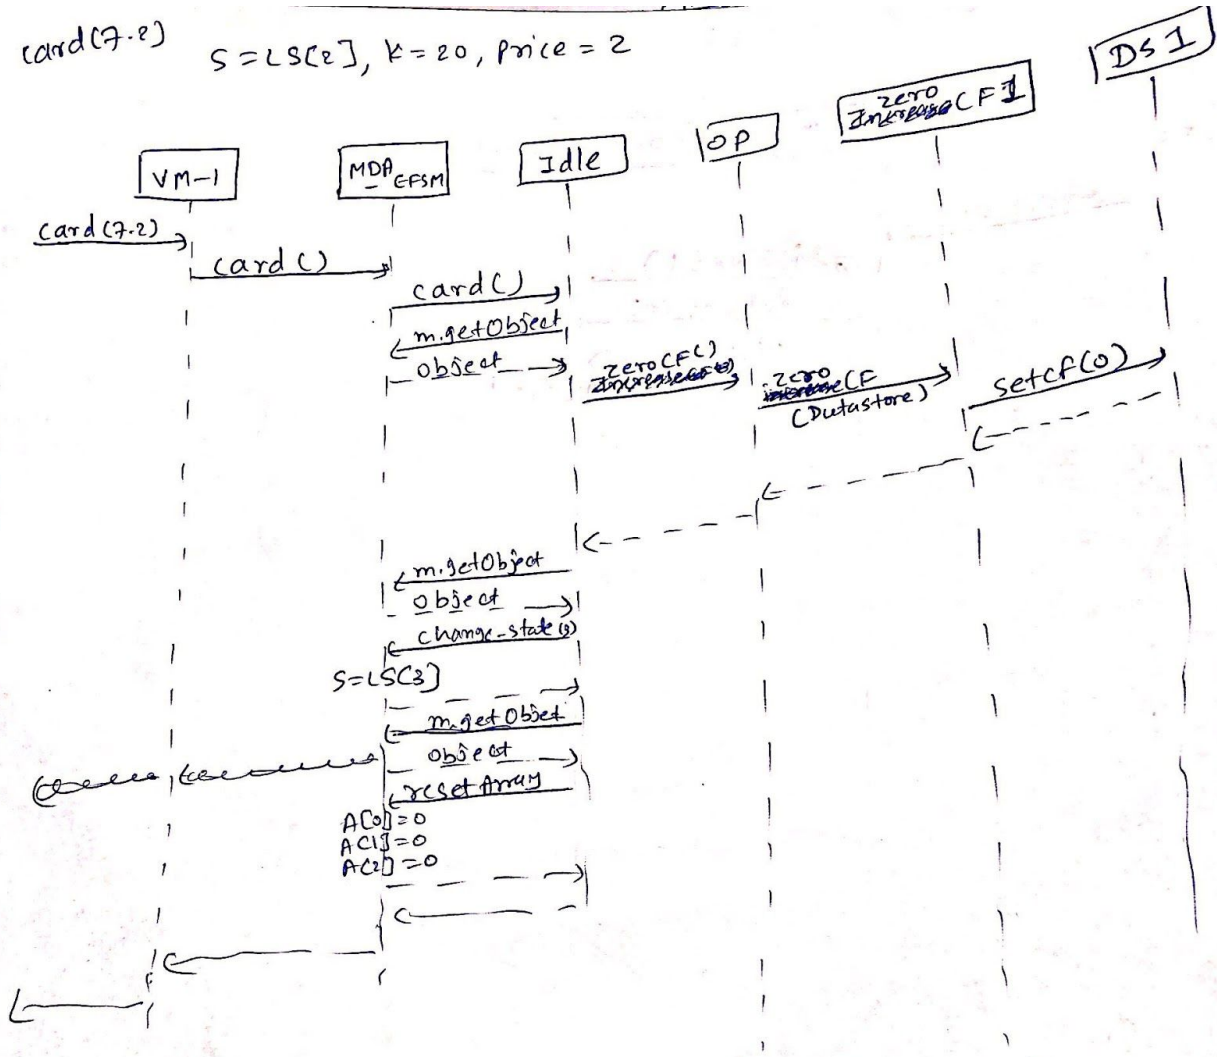 card(7.2)
S=LS[2], K=20, Price = 2
DS1
zero
CF1
OP
Idle
MDA_EFSM
VM-1
card(7.2)
card()
card()
m.getObject
object
zeroCF()
zero
CF
(Datastore)
setcf(0)
m.getObject
object
change-state(3)
S=LS[3]
m.getObjet
object
resetArray
A[0]=0
A[1]=0
A[2]=0